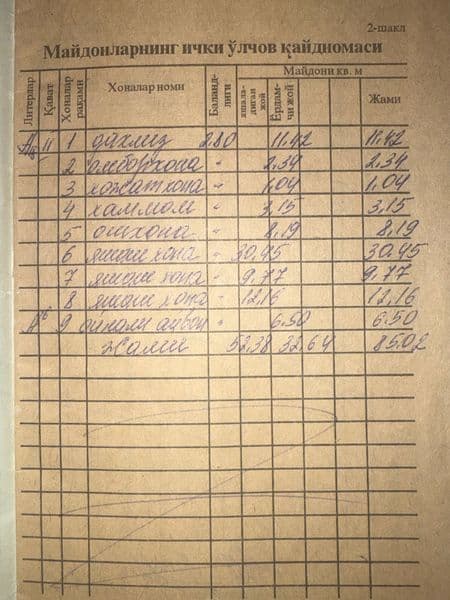 2-шакл
Майдонларнинг ички ўлчов қайдномаси
Литерлар Қават Хоналар рақами Хоналар номи Баландлиги Майдони кв. м
яшаладиган жой Ёрдамчи жой Жами
II 1 дахлиз 2.80 11.42 11.42
2 омборхона " 2.34 2.34
3 хожатхона " 1.04 1.04
4 хаммом " 3.15 3.15
5 ошхона " 8.19 8.19
6 яшаш хона " 30.45 30.45
7 яшаш хона " 9.77 9.77
8 яшаш хона " 12.16 12.16
9 ойнали айвон " 6.50 6.50
Жами 52.38 32.64 85.02